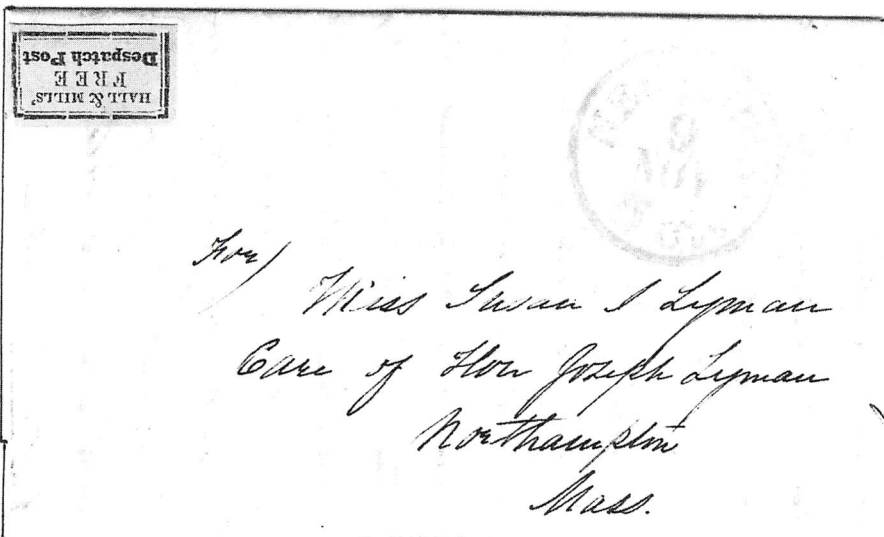 HALL & MILLS'
FREE
Despatch Post
For)
Miss Susan I Lyman
Care of Hon Joseph Lyman
Northampton
Mass.